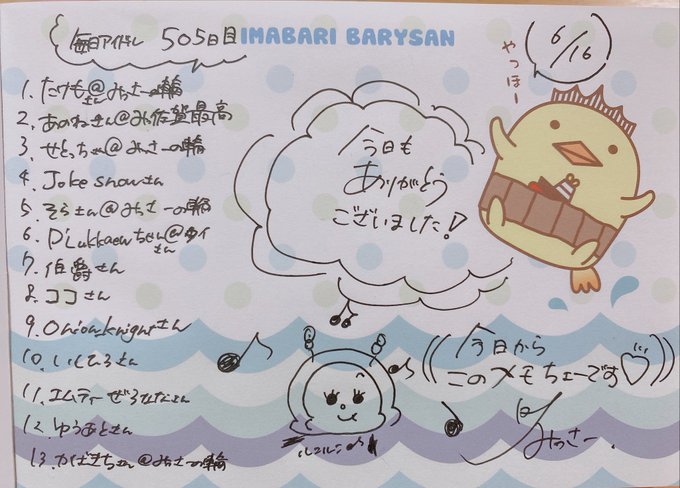 毎日アイドル 505日目
IMABARI BARYSAN
6/16
やっほー
1. たけも@みっさーの輪
さん
2. あのねさん@み佐賀最高
3. せとっちゃ@みっさーの輪
4. Joke snowさん
5. そらさん@みっさーの輪
6. Plukkaewちゃん@タイ
さん
7. 伯爵さん
8. ココさん
9. Onion knightさん
10. いしころさん
11. エムティーぜろななさん
12. ゆうあとさん
13. かばきちさん@みっさーの輪
今日も
ありがとう
ございました!
今日から
このメモちょーです
みっさー.
ルンルン